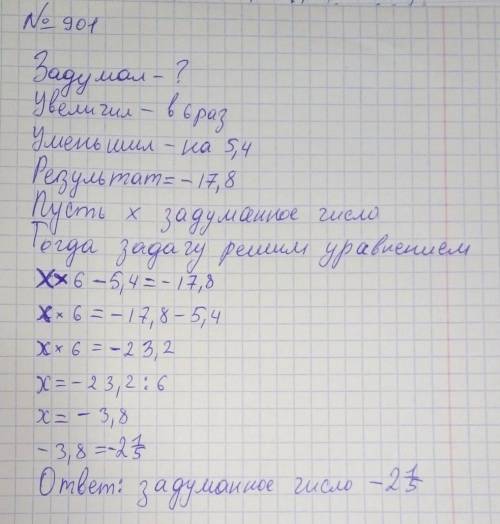 № 901
Задумал - ?
Увеличил - в 6 раз
Уменьшил - на 5,4
Результат = - 17,8
Пусть x задуманное число
Тогда задачу решим уравнением
x × 6 - 5,4 = - 17,8
x × 6 = - 17,8 - 5,4
x × 6 = - 23,2
x = - 23,2 : 6
x = - 3,8
- 3,8 = -2 1/5
Ответ: задуманное число - 2 1/5